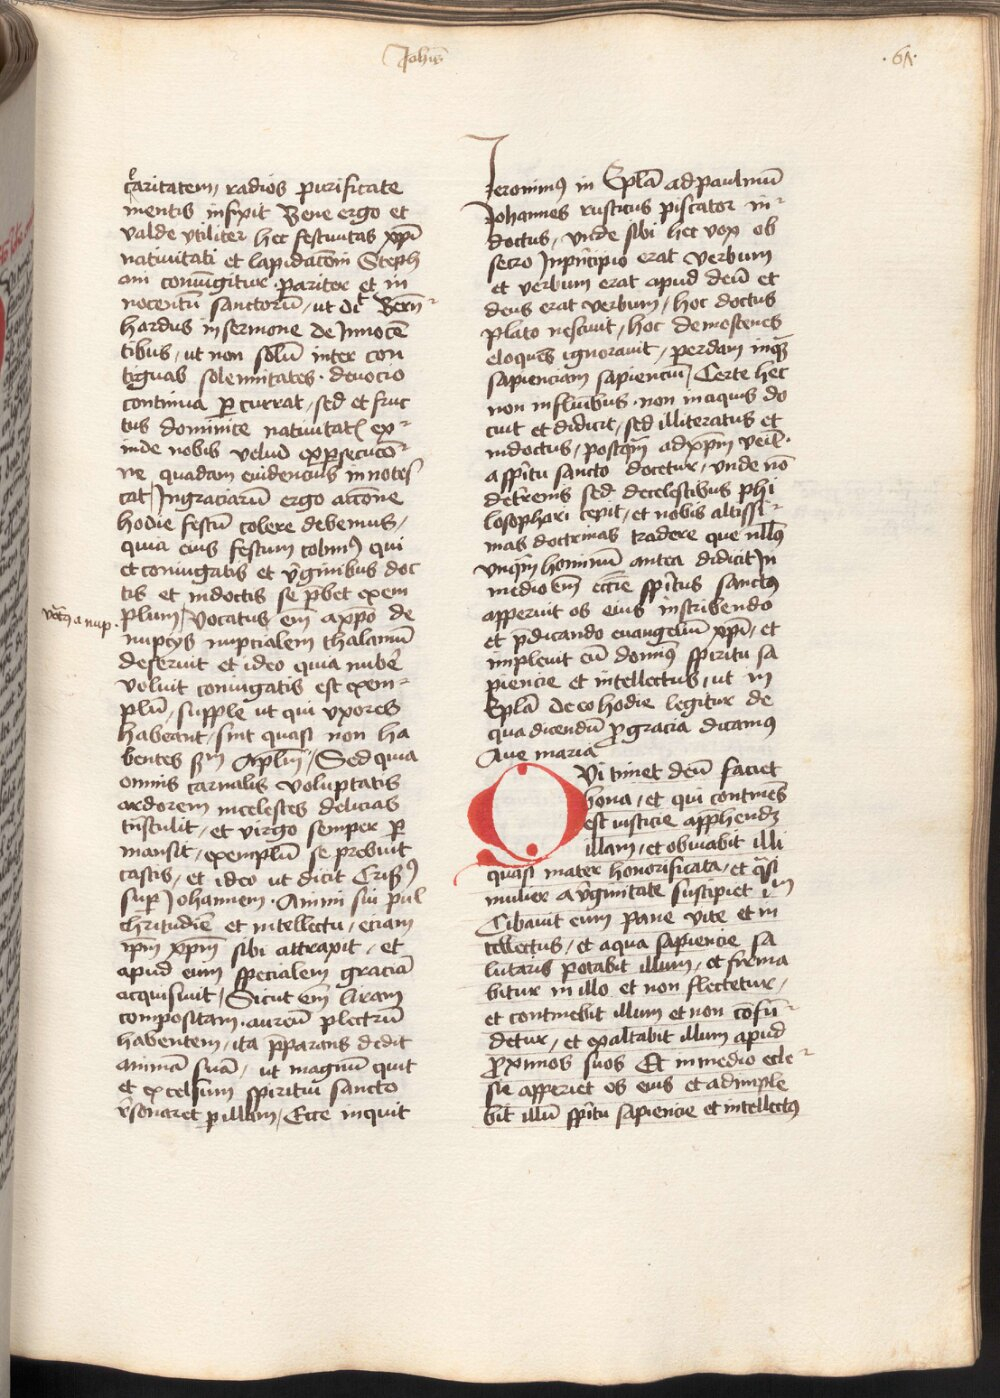 Joh̄is
·61·
caritatem, radios purificate
mentis infixit Bene ergo et
valde vtiliter hec festiuitas xp̄i
natiuitati et lapidac̄oni Steph
ani coniūgitur · pariter et in
nocentū sanctorū, ut dt̄ Bern
hardus in sermone de Innocē
tibus, ut non solū inter con
tiguas solennitates · deuocio
continua p̲currat, sed et fruc
tus dominice natiuitat̄ ex
inde nobis velud ex p̲secucō
ne quadam euidencius innotes
cat, In graciarū ergo accōne
hodie festū colere debemus,
quia eius festum colim9 qui
et coniugatis et v̄ginibus doc
tis et indoctis se p̄bet exem
plum, Vocatus em̄ a xp̄o de
nupcijs nupcialem thalamū
deseruit et ideo quia nubē
voluit coniugatis est exem
plū, supple ut qui vxores
haberent, sint quasi non ha
bentes sm̄ Ap̄lm̄, Sed quia
omnis carnalis voluptatis
ardorem in celestes delicias
tn̄stulit, et virgo semper p̲
mansit, exemplū se prebuit
castis, et ideo ut dicit Criß9
sup̲ Johannem · Animi sui pul
chritudīe et intellectu, eciam
ip̄m xp̄m sibi attraxit, et
apud eum specialem graciā
acquisiuit, Sicut em̄ liram
compositam · aureū plectrū
habentem, ita p̄parans dedit
animā suā, ut magnū quit
et excelsum spiritui sancto
r̄sonaret p̲ illam, Ecce inquit
a nup.
Jeronim9 in Ep̄la ad paulinū
Johannes rusticus piscator in
doctus, vnde sibi hec vox ob
secro Inprīcipio erat verbum
et verbum erat apud deū et
deus erat verbum, hoc doctus
plato nesciuit, hoc demostenes
eloquēs ignorauit, perdam inq̄
sapienciam sapienciū, Certe hec
non in fluuībus · non in aquis do
cuit et didicit, sed illiteratus et
indoctus, postq̄m ad xp̄m venīt ·
a spīritu sancto docetur, vnde nō
de tr̄renis sed de celestibus phi
losophari cepit, et nobis altissi
mas doctrinas tradere que null9
vnq̄m hominū antea didicit In
medio em̄ ecc̄ie sp̄itus sanctus
apperuit os eius in scribendo
et p̄dicando euangeliū xp̄i, et
impleuit eū domin9 spiritu sa
piencie et intellectus, ut in
Ep̄la de eo hodie legitur de
qua dicendū p̲ gracia dicamus
Aue maria
QVi timet deū faciet
bona, et qui continēs
est iusticie app̄hendz
illam, et obuiabit illi
quasi mater honorificata, et q̄si
mulier a v̄ginitate suscipiet iɫm
Cibauit eum pane vite et in
tellectus, et aqua sapiencie sa
lutaris potabit illum, et firma
bitur in illo et non flectetur,
et continebit illum et non cōfū
detur, et exaltabit illum apud
p̲ximos suos Et in medio ecle
sie apperiet os eius et adimple
bit illū sp̄itu sapiencie et intellectus